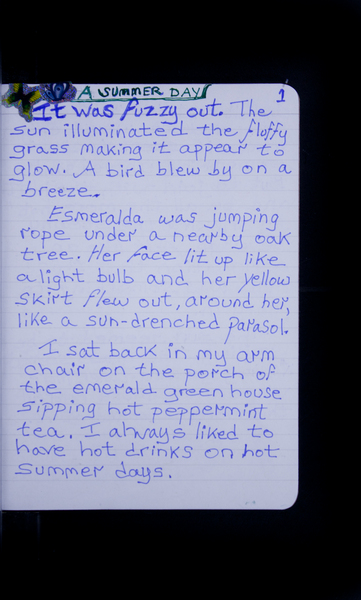 A SUMMER DAY
1
It was fuzzy out. The
sun illuminated the fluffy
grass making it appear to
glow. A bird blew by on a
breeze.
Esmeralda was jumping
rope under a nearby oak
tree. Her face lit up like
a light bulb and her yellow
skirt flew out, around her,
like a sun-drenched parasol.
I sat back in my arm
chair on the porch of
the emerald green house
sipping hot peppermint
tea. I always liked to
have hot drinks on hot
summer days.